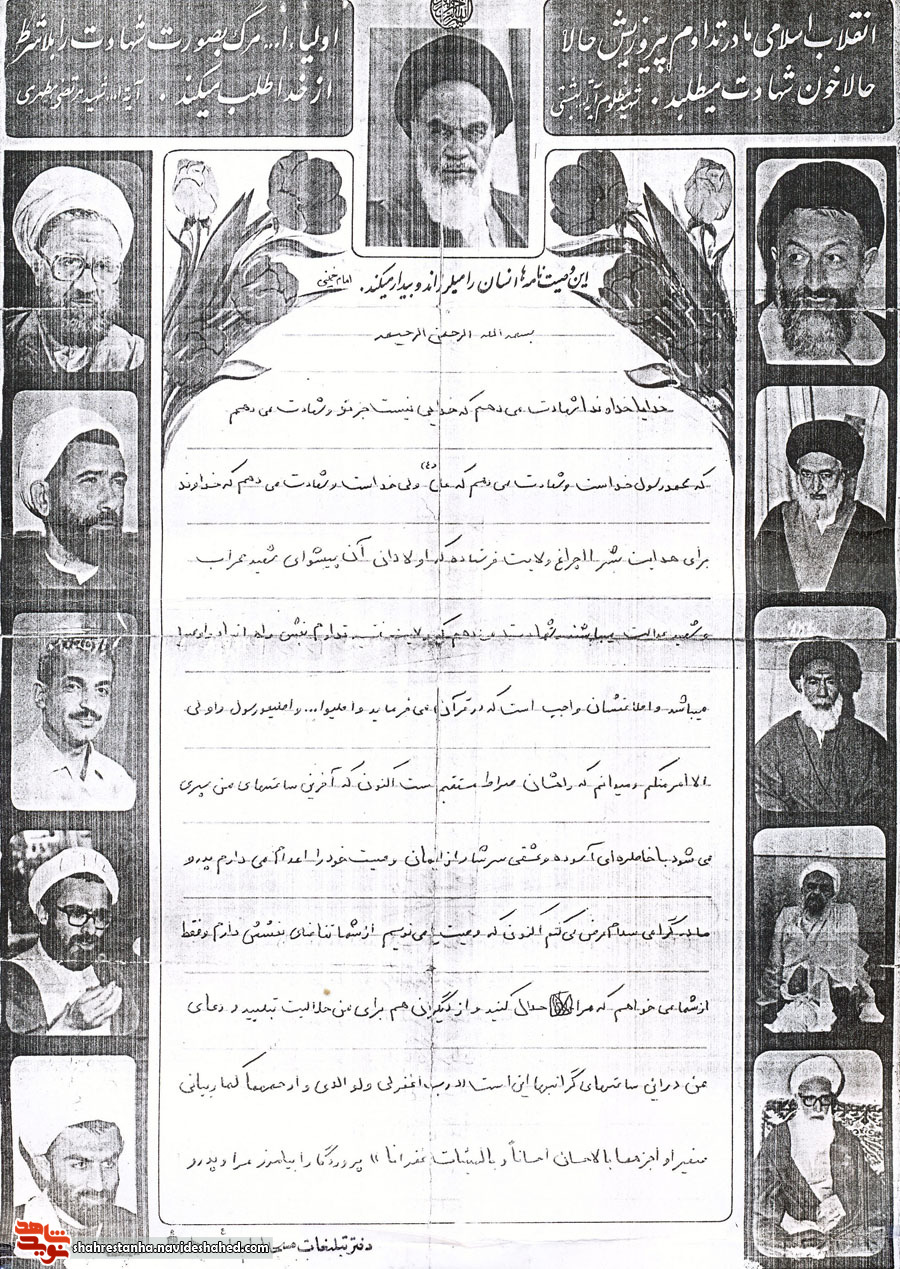 انقلاب اسلامی ما در تداوم پیروزیش حالا
حالا خون شهادت میطلبد. شهید مظلوم آیة... بهشتی
اولیاء ا... مرگ بصورت شهادت را بلاشرط
از خدا طلب میکند. آیة ا... شهید مرتضی مطهری
این وصیت نامه ها انسان را میلرزاند و بیدار میکند. امام خمینی
بسمه الله الرحمن الرحیم
خدایا خداوندا شهادت می دهم که خدایی نیست جز تو و شهادت می دهم
که محمد رسول خداست و شهادت می دهم که علی (ع) ولی خداست و شهادت می دهم که خداوند
برای هدایت بشر چراغ ولایت فرستاده که اولادانی آن پیشوای شهید محراب
و شهید عدالت میباشند شهادت می دهم که ولایت تداوم بخش راه
میباشد و اطاعتشان واجب است که در قرآن می فرماید و اطیعوا... و اطیعو رسول و اولی
الا امر منکم و میدانم که راهشان صراط مستقیم است اکنون که آخرین ساعتهای من سپری
می شود با خاطره ای آسوده و عشقی سرشار از ایمان وصیت خود را اعلام می دارم پدر و
مادر گرامی سلام عرض می کنم اکنون که وصیت می نویسم از شما تقاضای بخششی دارم و فقط
از شما می خواهم که مرا حلال کنید و از دیگران هم برای من حلالیت بطلبید و دعای
من در این ساعتهای گرانبها این است رب اغفرلی ولوالدی و ارحمهما کما ربیانی
صغیرا و اجزهما بالاحسان احساناً و بالسیئات غفرانا » پروردگارا بیامرز مرا و پدر و
دفتر تبلیغات
شاهد
نوید
shahrestanha.navideshahed.com